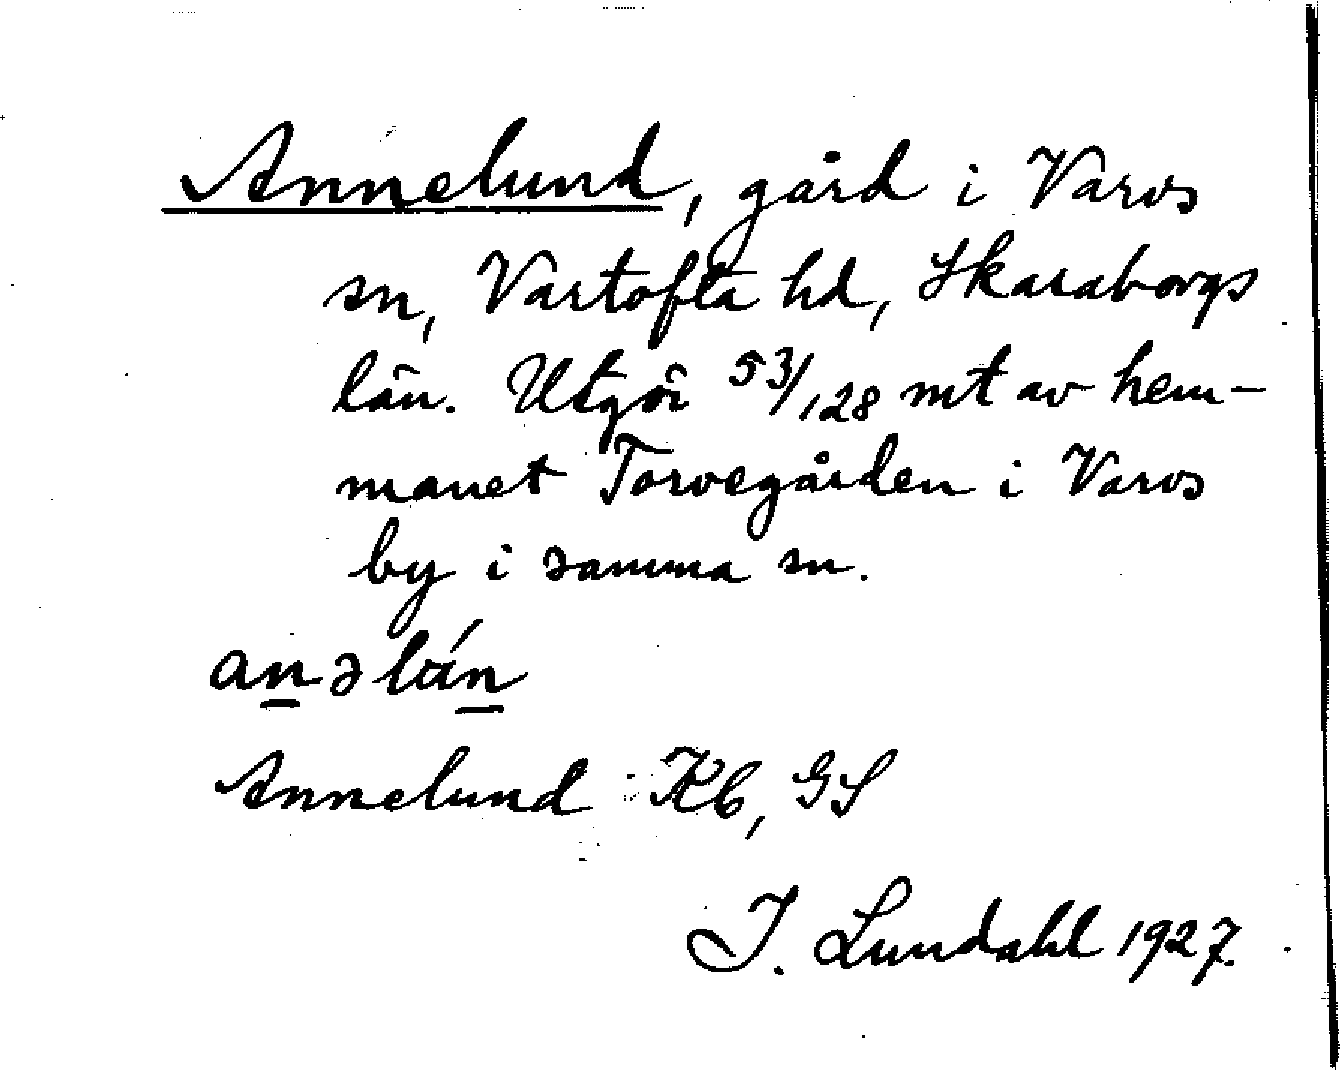 Annelund, gård i Varvs
sn, Vartofta hd, Skaraborgs
län. Utgör 53/128 mt av hem-
manet Torvegården i Varvs
by i samma sn.
anəlán
Annelund Kb, GS
I. Lundahl 1927.